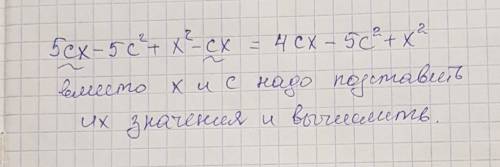 5cx-5c²+x²-cx = 4cx-5c²+x²
вместо x и c надо подставить
их значения и вычислить.